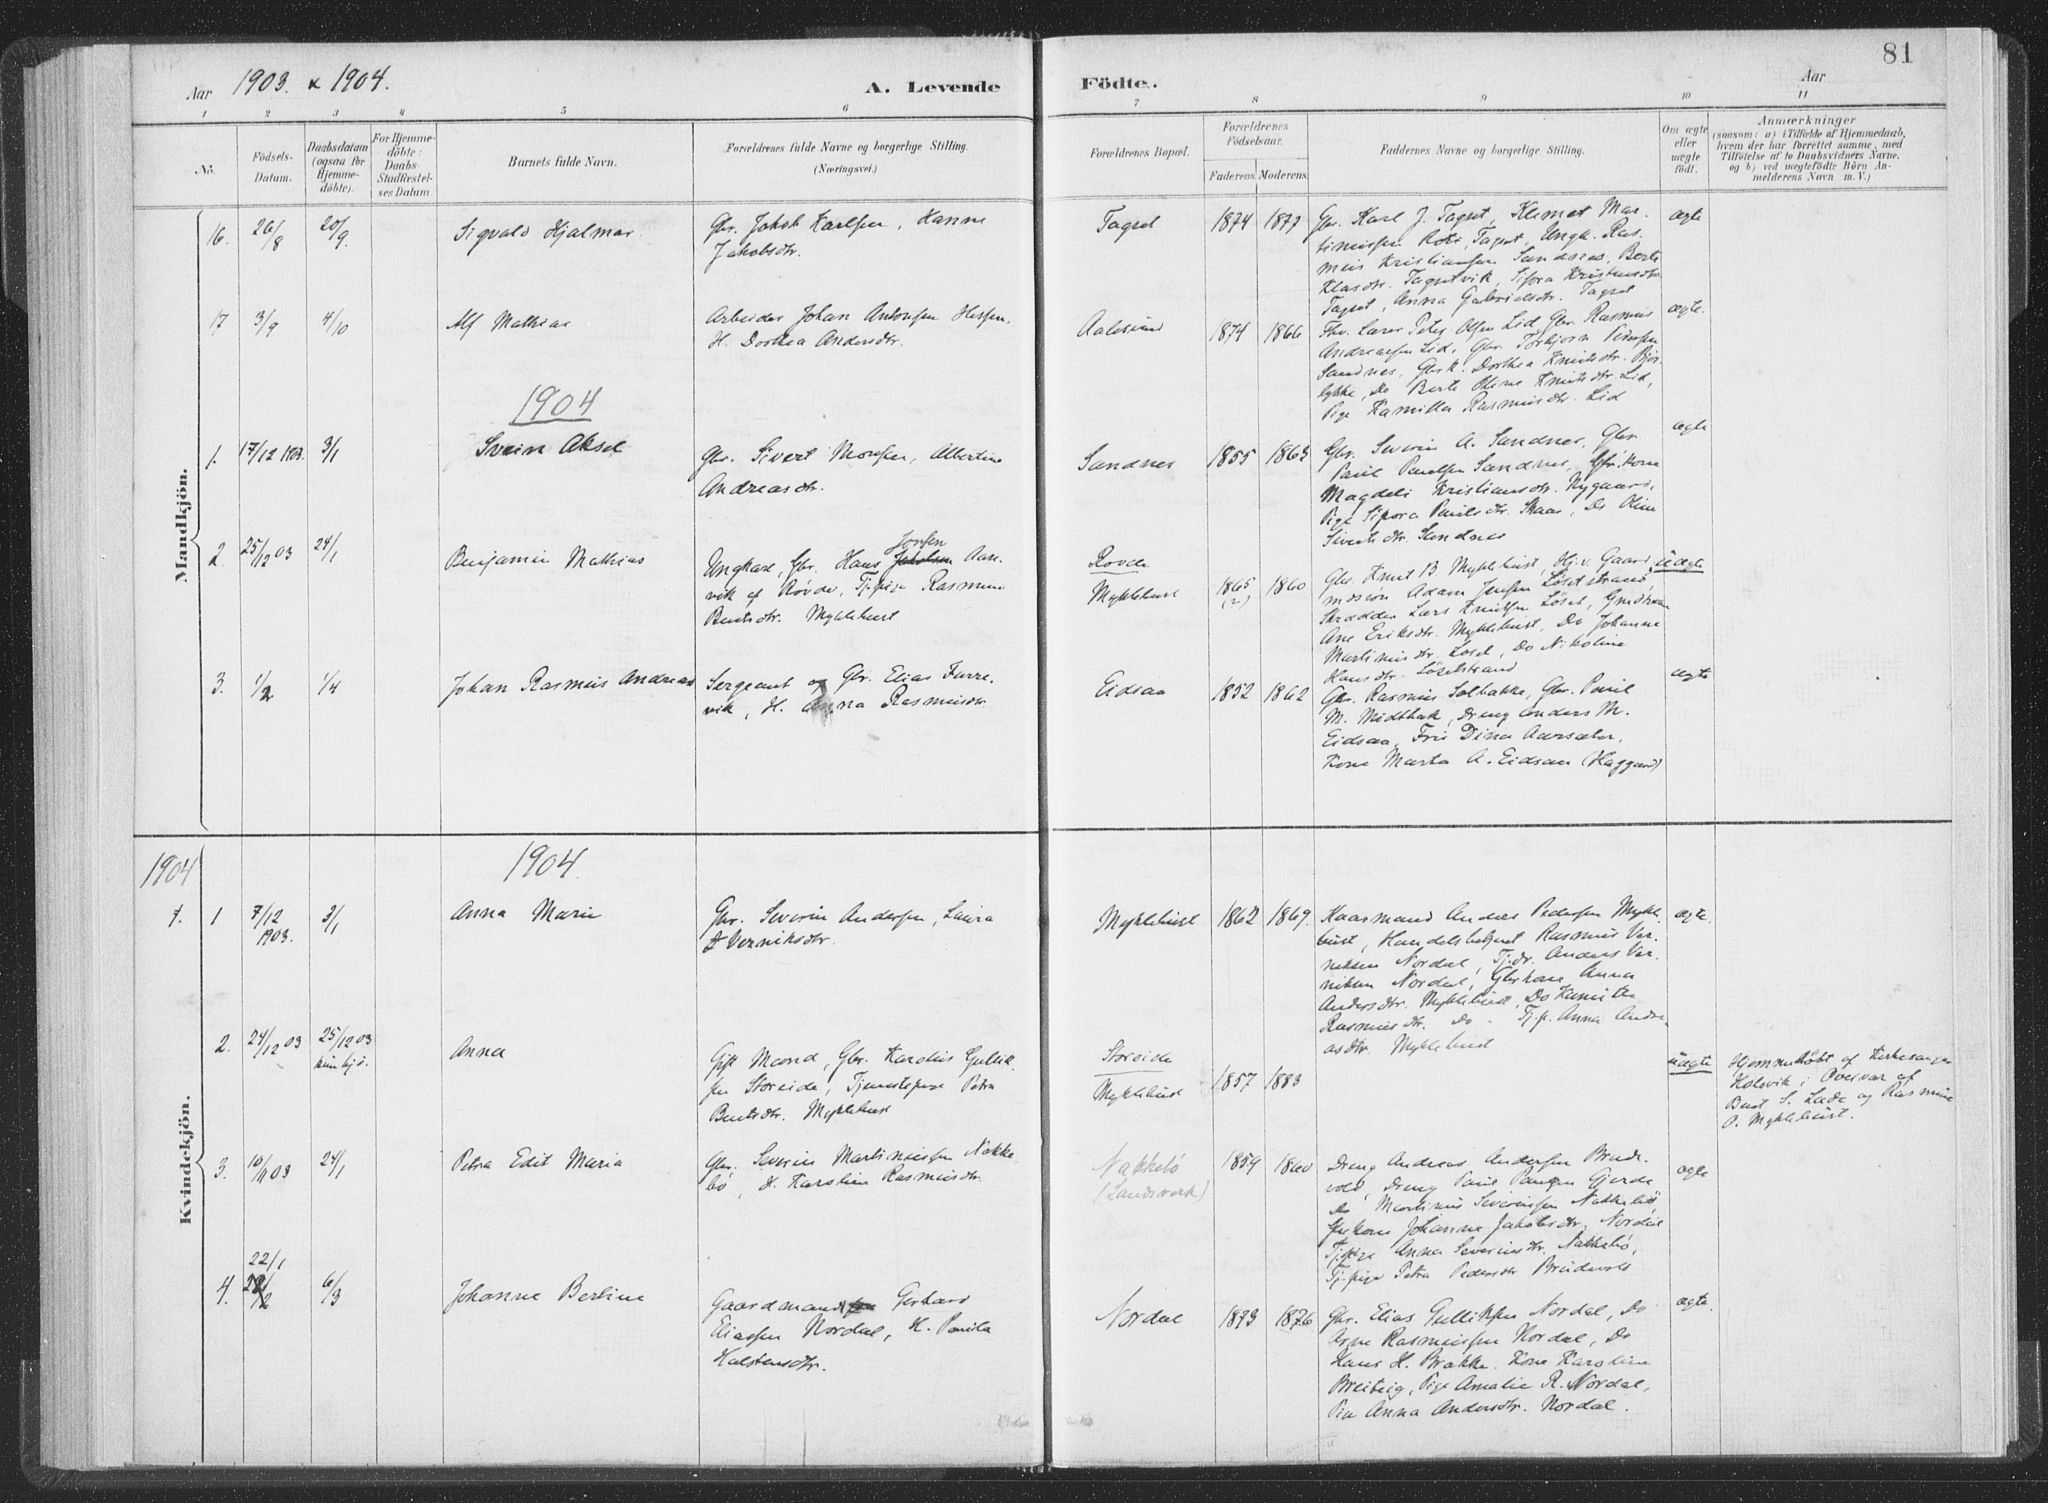 81
Aar 1903 & 1904.
A. Levende Födte.
Aar
1 2 3 4 5 6 7 8 9 10 11
No.
Födsels-Datum.
Daabsdatum (ogsaa for Hjemme-döbte).
For Hjemme-döbte: Daabs-Stadfæstel-ses Datum
Barnets fulde Navn.
Forældrenes fulde Navne og borgerlige Stilling.
(Næringsvei.)
Forældrenes Bopæl.
Forældrenes Födselsaar.
Faderens. Moderens.
Faddernes Navne og borgerlige Stilling.
Om ægte eller uægte födt.
Anmærkninger
(saasom: a) i Tilfælde af Hjemmedaab,
hvem der har forrettet samme, med
Tilföielse af to Daabsvidners Navne.
og b) ved uægtefödte Börn An-
melderens Navn m. V.)
Mandkjön.
16. 26/8 20/9 Sigvald Hjalmar
Gbr. Jakob Karlsen, Hanna
Jakobsdtr.
Tagset 1874 1877
Gbr. Karl J. Tagset, Klemet Mar-
tinussen Tagset, Ungk. Ras-
mus Kristiansen Sandnes, Berte
Klasdtr. Tagsetvik, Sifora Kristensdtr.
Tagset, Anna Gabrielsdtr. Tagset
ægte
17 3/9 4/10 Alf Mathias
Arbeider Johan Antonsen Hessen,
H. Dorthea Andersdtr.
Aalesund 1874 1866
Fhv. Lærer Peter Olsen Lid, Gbr. Rasmus
Andreassen Lid, Gbr. Torbjørn
Sandnes, Gbrk. Dorthea Knutsdtr. Bjør-
lykke, Do Berte Oline Knutsdtr. Lid,
Pige Kamilla Rasmusdtr. Lid
ægte.
1904
1. 17/12 1903. 3/1 Svein Aksel
Gbr. Sivert Monsen, Albertine
Andreasdtr.
Sandnes 1855 1863
Gbr. Severin A. Sandnes, Gbr.
Paul Paulsen Sandnes, Gbr. Kone
Magdeli Kristiansdtr. Nygaard,
Pige Sifora Paulsdtr. Skaar, Do Oline
Sivertsdtr. Sandnes
ægte
2. 25/12 03 24/1 Benjamin Mathias
Jonsen
Ungkarl, Gbr. Hans Jakobsen Aar-
vik af Rovde, Tj.pige Rasmine
Bentsdtr. Myklebust
Rovde
Myklebust 1865 (?) 1860
Gbr. Knut B Myklebust, Hj.v. Gaard-
mdssøn Adam Jensen Løsetstrand
Skrædder Lars Knutsen Løset, Gmdkone
Ane Eriksdtr. Myklebust, Do Johanne
Martinusdtr. Løset, Do Nikoline
Hansdtr. Løsetstrand
uægte
3. 1/2 1/4 Johan Rasmus Andreas
Sergeant og Gbr. Elias Furre-
vik, H. Anna Rasmusdtr.
Eidsaa 1852 1862
Gbr. Rasmus Solbakke, Gbr. Paul
M. Midtbak, Dreng Anders M.
Eidsaa, Frk Dina Aarsæter,
Kone Marta A. Eidsaa (Haggard)
ægte
Kvindekjön.
1904 1904.
1. 1 7/12 1903. 3/1 Anna Marie
Gbr. Severin Andersen, Laura
D Verniksdtr.
Myklebust 1862 1869.
Kaarmand Anders Pedersen Mykle-
bust, Handelsbetjent Rasmus Ver-
niksen Nordal, Tj.dr. Anders Ver-
niksen Nordal, Gbrkone Anna
Andersdtr. Myklebust, Do
Rasmusdtr. Do - Tj.p. Anna Andre-
asdtr. Myklebust
ægte.
2. 24/12 03 25/12 03
kun hj.d.
Anna
Gift Mand, Gbr. Karolus Gullik-
sen Storeide, Tjenestepige Petra
Bentsdtr. Myklebust
Storeide
Myklebust 1857 1883
uægte
Hjemmedøbt af Kirkesanger
Holsvik i Overvær af
Bent S. Lade og Rasmine
O. Myklebust.
3. 10/11 03 24/1 Petra Edit Maria
Gbr. Severin Martinussen Nakke-
bø, H. Karoline Rasmusdtr.
Nakkebø
(Landsverk)
1859 1860
Dreng Andreas Andersen Breid-
vold, Dreng Paul Paulsen Gjerde
Do Martinus Severinsen Nakkebø
Gbrkone Johanne Jakobsdtr. Nordal
Tj.pige Anna Severinsdtr. Nakkebø,
Tj.pige Petra Pedersdtr Breidvold
ægte
22/1
4. 28/2 6/3 Johanne Berline
Gaardmand Gerhard
Eliassen Nordal, H. Paula
Halstensdtr.
Nordal 1873 1876
Gbr. Elias Gulliksen Nordal, Do
Arne Rasmussen Nordal, Do
Hans H. Brekke. Kone Karoline
Breiteig, Pige Amalie R. Nordal,
Pie Anna Andersdtr. Nordal.
ægte.